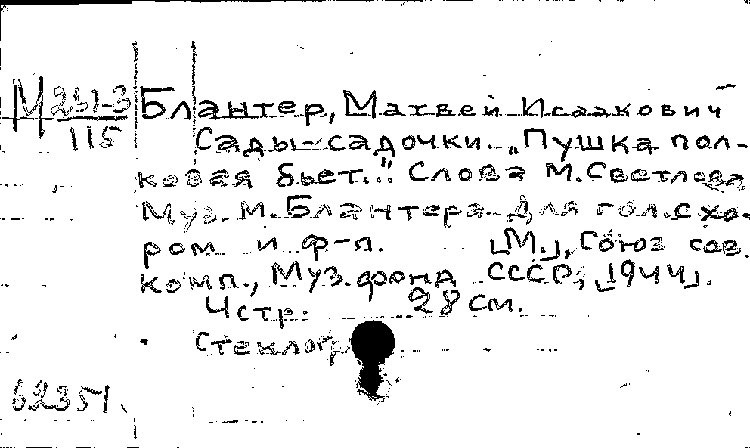 М 231-3
115
Блантер, Матвей Исаакович
Сады-садочки. „Пушка пол-
ковая бьет..." Слова М. Светлова
Муз. М. Блантера. Для гол. с хо-
ром и ф-п. [М.], Союз сов.
комп., Муз. фонд СССР, [1944].
4 стр. 28 см.
62351